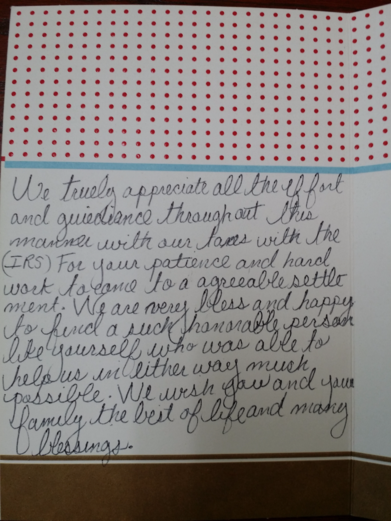 We truely appreciate all the effort
and guiediance throughout this
manner with our taxes with the
(IRS) For your patience and hard
work to come to a agreeable settle
ment. We are very bless and happy
to find a such honorable person
like yourself who was able to
help us in either way much
possible. We wish you and your
family the best of life and many
blessings.